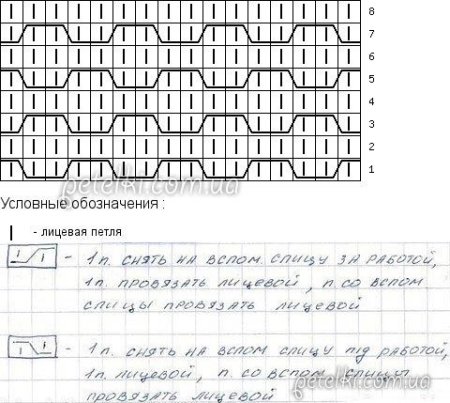 8
7
6
5
4
3
2
1
petelki.com.ua
petelki.com.ua
Условные обозначения :
| - лицевая петля
- 1 п. снять на вспом. спицу за работой,
1 п. провязать лицевой, п. со вспом
спицы провязать лицевой
- 1 п. снять на вспом спицу під работой,
1 п. лицевой, п. со вспом. спицы
провязать лицевой
petelki.com.ua